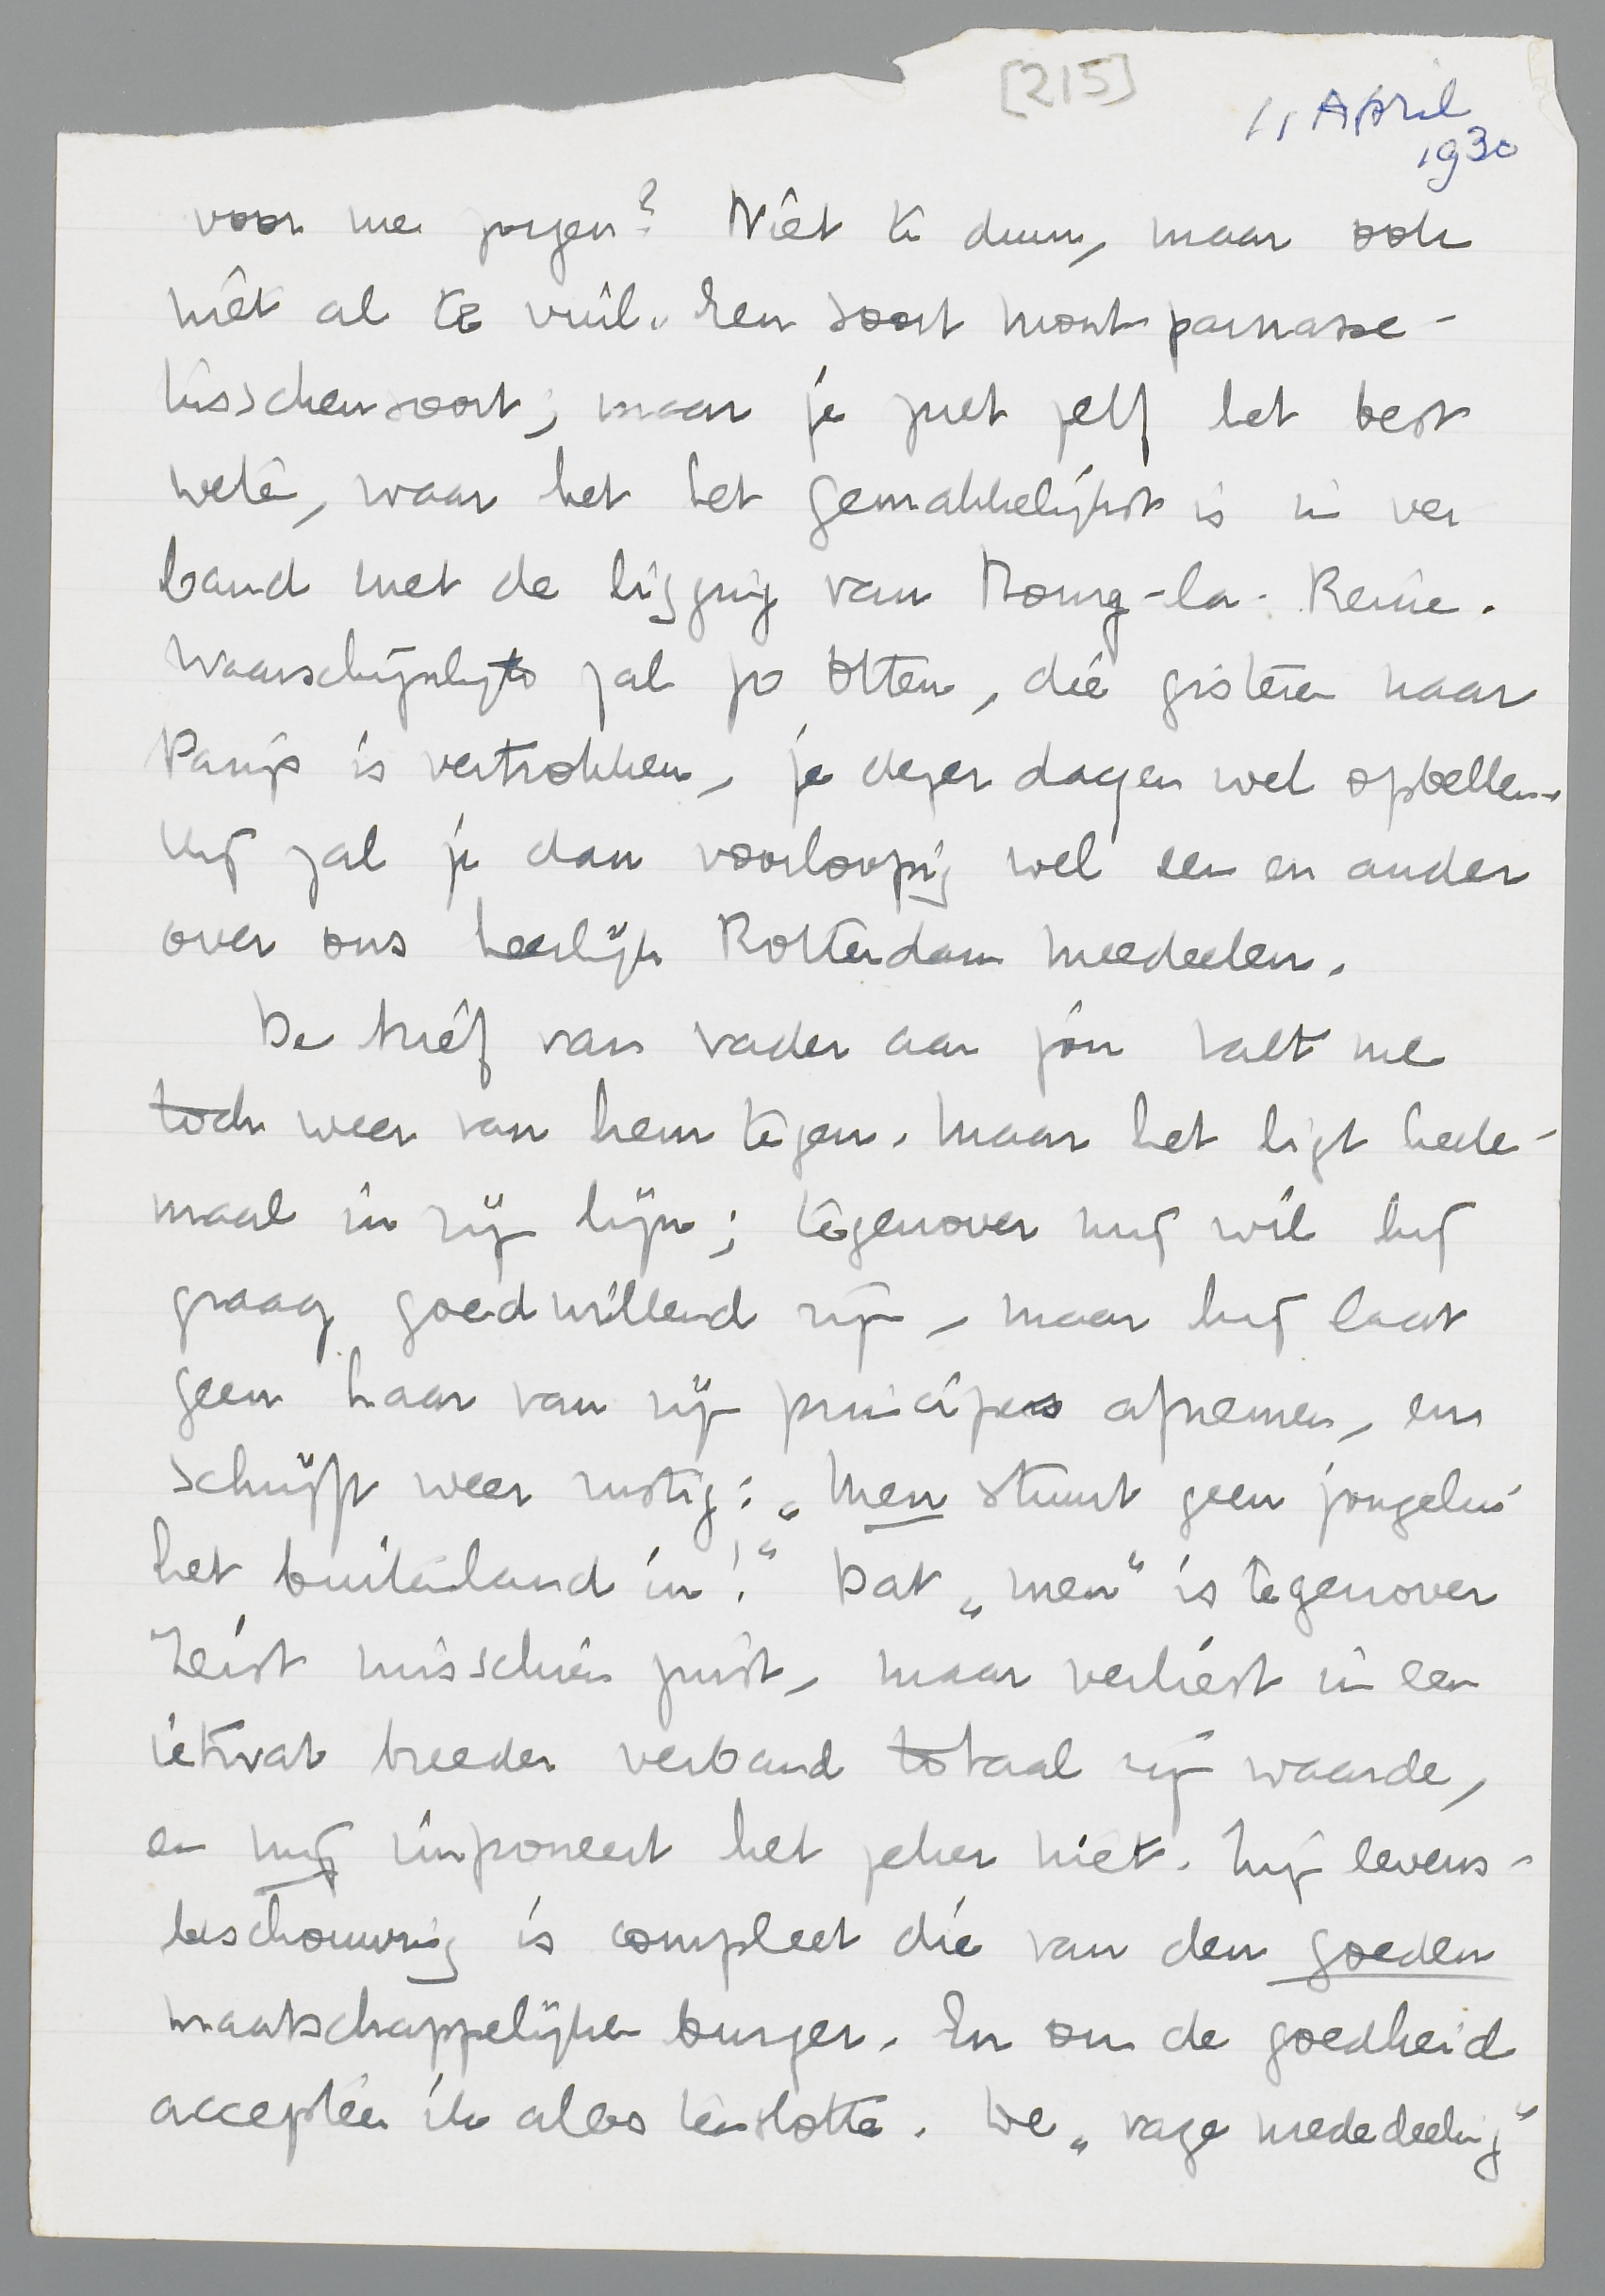 [215]
11 April
1930
voor me zorgen? Niet te duur, maar ook
niet al te vuil. Een soort montparnasse-
tusschensoort; maar je zult zelf het best
weten, waar het het gemakkelijkst is in ver
band met de ligging van Bourg-la-Reine.
Waarschijnlijk zal Jo Otten, die gisteren naar
Parijs is vertrokken, je dezer dagen wel opbellen.
Hij zal je dan voorloopig wel een en ander
over ons heerlijk Rotterdam meedeelen.
De brief van vader aan jou valt me
toch weer van hem tegen. Maar het ligt heele-
maal in zijn lijn; tegenover mij wil hij
graag goedwillend zijn, maar hij laat
geen haar van zijn principes afnemen, en
schrijft weer rustig: „Men stuurt geen jongelui
het buitenland in!“ Dat „men“ is tegenover
Zeist misschien juist, maar verliest in een
ietwat breeder verband totaal zijn waarde,
en mij imponeert het zeker niet. Zijn levens-
beschouwing is compleet die van den goeden
maatschappelijken burger. En om de goedheid
accepteer ik alles tenslotte. De „vage mededeeling“